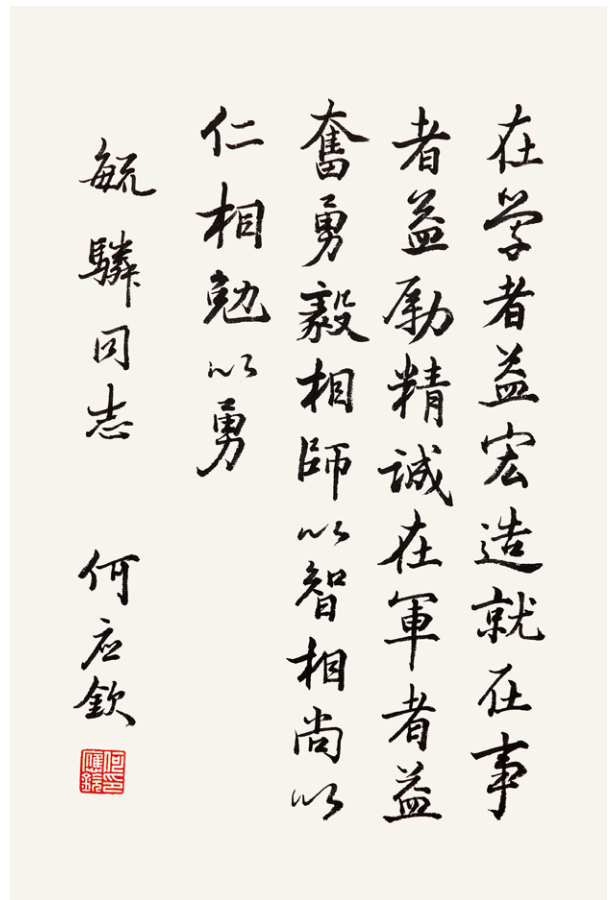 在学者益宏造就在事
者益励精诚在軍者益
奮勇毅相師以智相尚以
仁相勉以勇
毓驎同志
何应欽
何應欽印